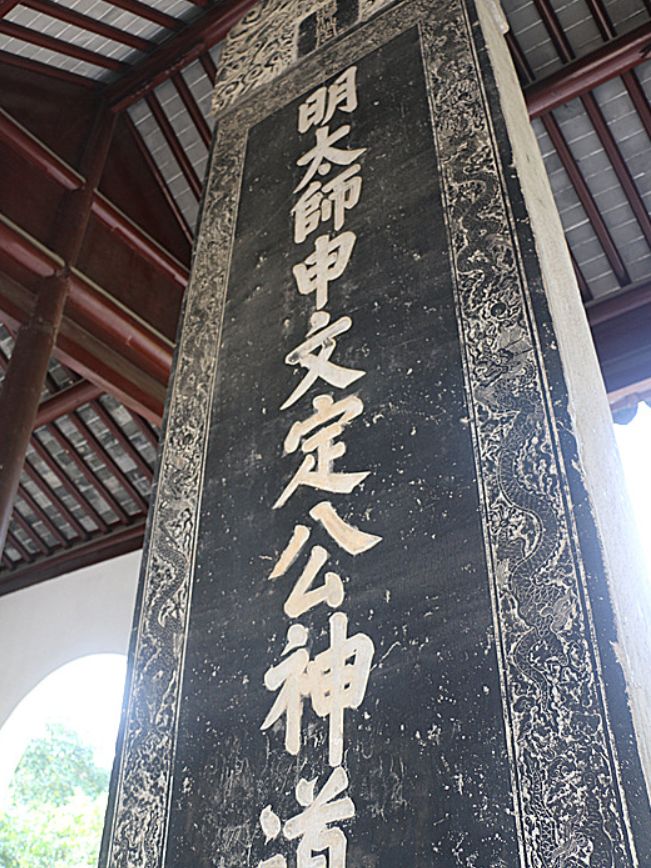 明太師申文定公神道